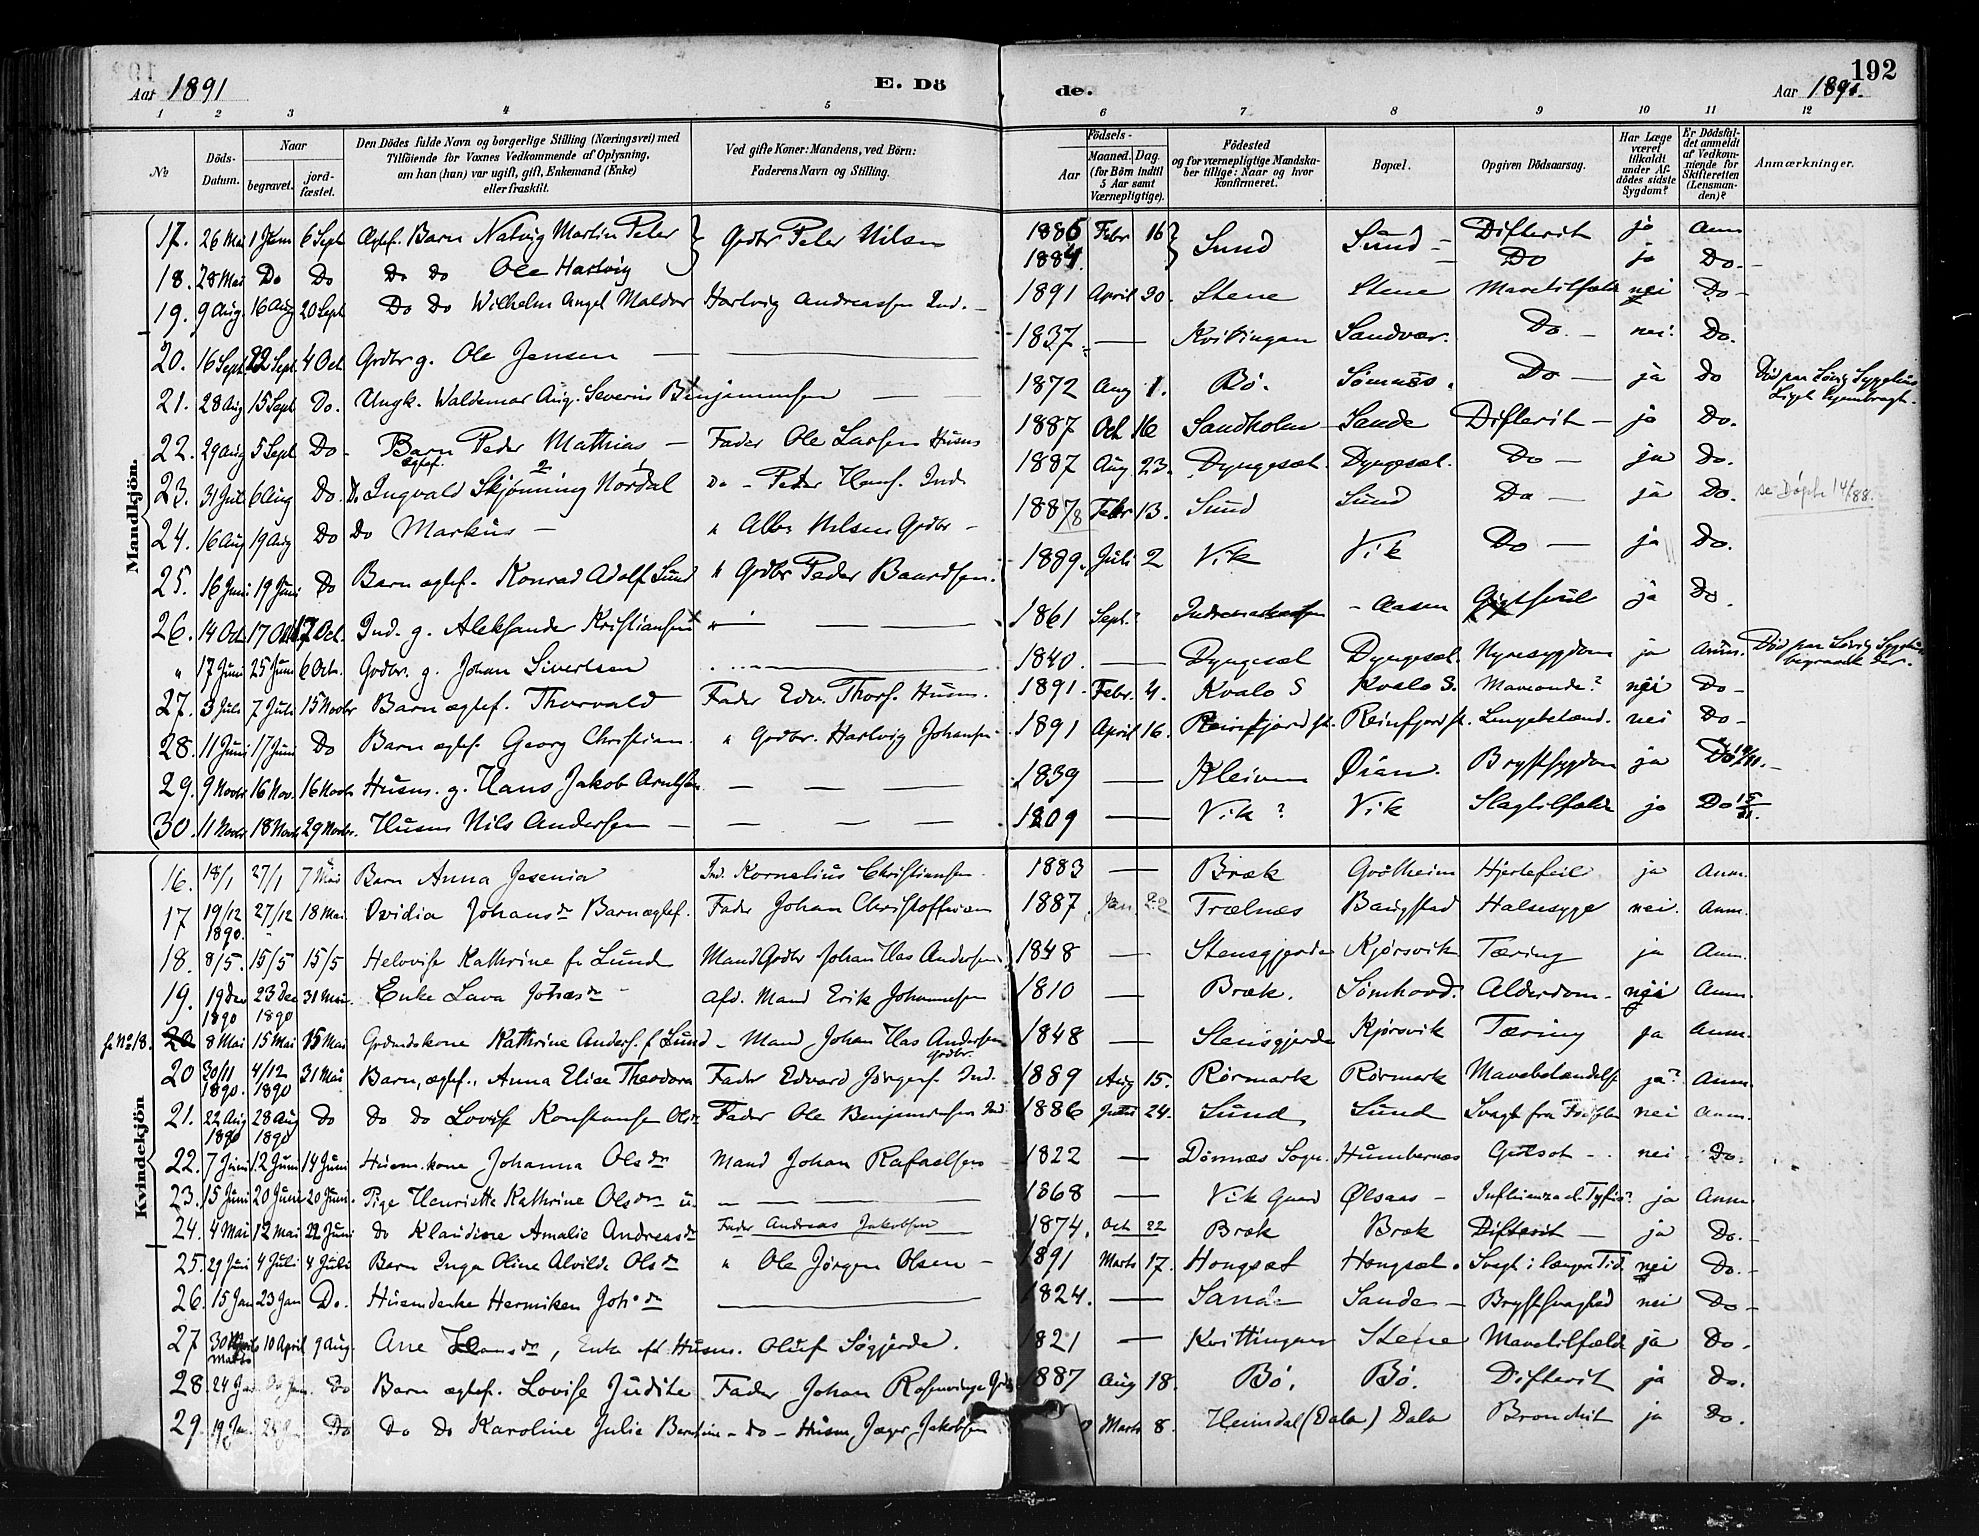 192
Aar 1891
E. Dö
de.
Aar 1891.
1 2 3 4 5 6 7 8 9 10 11 12
№
Döds-Datum.
Naar
begravet.
jord-fæstet.
Den Dödes fulde Navn og borgerlige Stilling (Næringsvei) med
Tilföiende for Voxnes Vedkommende af Oplysning,
om han (hun) var ugift, gift, Enkemand (Enke)
eller fraskilt.
Ved gifte Koner: Mandens, ved Börn:
Faderens Navn og Stilling.
Födsels-
Aar
Maaned. Dag.
(for Börn indtil
5 Aar samt
Værnepligtige).
Födested
og for værnepligtige Mandska-
ber tillige: Naar og hvor
konfirmeret.
Bopæl.
Opgiven Dödsaarsag.
Har Læge
været
tilkaldt
under Af-
dödes sidste
Sygdom?
Er Dödsfal-
det anmeldt
af Vedkom-
mende for
Skifteretten
(Lensman-
den)?
Anmærkninger.
Mandkjön.
17. 26 Mai 1 Juni 6 Sept Ægtef. Barn Natvig Martin Peter Grdbr Peter Nilsen 1886 Febr 16 Sund Sund Difterit ja Anm
18. 28 Mai Do Do Do Do Ole Hartvig 1884 Do ja Do.
19. 9 Aug. 16 Aug 20 Sept Do Do Wilhelm Angel Maldor Hartvig Andreassen Ind. 1891 April 30. Stene Stene Mavetilfælde nei Do
20. 16 Sept. 22 Sept. 4 Oct. Grdbr g. Ole Jensen 1837 Kvitingen Sandvær. Do. nei Do.
21. 28 Aug 15 Sept Do. Ungk. Waldemar Aug. Severin Benjaminsen 1872 Aug 1. Bö. Sömnæs. Do ja Do Död paa Lövig Sygehus
22. 29 Aug 5 Sept Do Barn Peder Mathias Fader Ole Larsen Husm 1887 Oct 16 Sandholm Sande Difterit ja Do.
ægtef.
23. 31 Juli 6 Aug Do. Do Ingvald Skjönning Nordal Do Peder Hans. Ind. 1887 Aug. 23. Dyngesæt. Dyngesæt. Do ja Do.
24. 16 Aug 19 Aug Do Do Markus " Albr Nilsen Grdbr 1887/8 Febr 13. Sund Sund Do ja Do. se Döpte 14/88.
25. 16 Juni 19 Juni Do Barn ægtef. Konrad Adolf Sund " Grdbr Peder Baardsen. 1889. Juli 2 Vik Vik Do ja Do.
26. 14 Oct. 17 Oct 17 Oct. Ind. g. Aleksander Kristiansen 1861 Sept. Aasen ja Do.
" 17 Juni 25 Juni 6 Oct. Grdbr. g. Johan Sivertsen 1840. Dyngesæt Dyngesæt. Nyresygdom ja Anm. Död paa Lövig Sygehus
begravet der.
27. 3 Juli 7 Juli 15 Novbr Barn ægtef. Thorvald Fader Edv. Thors. Husm. 1891. Febr. 4. Kvalo S Kvalo S. Maveonde? nei Do
28. 11 Juni 17 Juni Do Barn ægtef. Georg Christian " Grdbr. Hartvig Johansen 1891 April 16. Reinfjord st. Reinfjord st. Lungebetænd. nei Do
29. 9 Novbr 16 Nov. 16 Novbr Husm. g. Hans Jakob Arntsen 1839 Kleiven Öian. Brystsygdom ja Do
30. 11 Novbr 18 Novbr 29 Novbr. Husm Nils Andersen 1809 Vik? Vik Slagtilfælde ja Do
Kvindekjön
16. 18/1 27/1 7 Mai Barn Anna Jesenia Ind. Kornelius Christiansen 1883 Bræk Hjertefeil ja Anm.
17 19/12 1890. 27/12 18 Mai Ovidia Johansdr Barn ægtef. Fader Johan Christoffersen 1887 Jan. 22 Trælnæs Baugstad Halsesyge nei. Anm.
18. 8/5. 15/5 15/5 Helovise Kathrine f. Lund Mand Grdbr Johan Klas Andersen 1848 Stensgjerde Kjörsvik Tæring ja Anm.
19. 19 Dec 1890 23 Dec 1890 31 Mai Enke Lava Johasdr afd. Mand Erik Johannesen 1810 Bræk. Sömhovd. Alderdom nei Anm.
se No 18. 20 8 Mai 15 Mai 15 Mai Grdmdskone Kathrine Anders. f. Lund Mand Johan Klas Andersen grdbr. 1848 Stensgjerde Kjörsvik Tæring ja Anm.
20 30/11 1890. 4/12 1890 31 Mai Barn, ægtef., Anna Elise Theodora Fader Edvard Jörgens. Ind. 1889 Aug 15. Rörmark Rörmark Mavebetændelse ja? Anm.
21. 22 Aug 1890 28 Aug 1890 Do Do Do Lovise Konstanse Olsdr Fader Ole Benjaminsen Ind 1886 24. Sund Sund Svagt fra Födselen nei Anm.
22. 7 Juni 12 Juni 14 Juni Husm.kone Johanna Olsdr Mand Johan Rafaelsen 1822 Dönnæs Sogn. Humbernæs Gulsot nei Do.
23. 15 Juni 20 Juni 20 Juni. Pige Henriette Kathrine Olsdr u. 1868 Vik Gaard Ölsaas Influenza el. Tyfus? ja Anm
24. 4 Mai 12 Mai 22 Juni do Klaudine Amalie Andreasdr Fader Andreas Jakobsen 1874. Oct 22 Bræk Bræk Difterit ja Do.
25. 29 Juni 4 Juli 4 Juli Barn Inga Oline Alvilde Olsdr " Ole Jörgen Olsen 1891 Marts 17. Hongsæt Hongsæt. Svagt i længre Tid nei Do.
26. 15 Jan 23 Jan Do. Husmdenke Herniken Johsdr 1824. Sande Sande Brystsvaghed nei Do
27 30 Marts 10 April 9 Aug. Ane Hansdr, Enke eft. Husm. Oluf Sögjerde. 1821 Kvittingen Stene Mavetilfælde ja Do.
28 24 Jan Do Barn ægtef. Lovise Judite Fader Johan Rosenvinge 1887 Aug 18. Bö. Bö. Difterit ja Do.
29. 19 Jan. Do Do Do Karoline Julie Berntine do Husm Jæger Jakobsen Marts 8. Heimdal (Dala) Dala Bronchit ja Do.